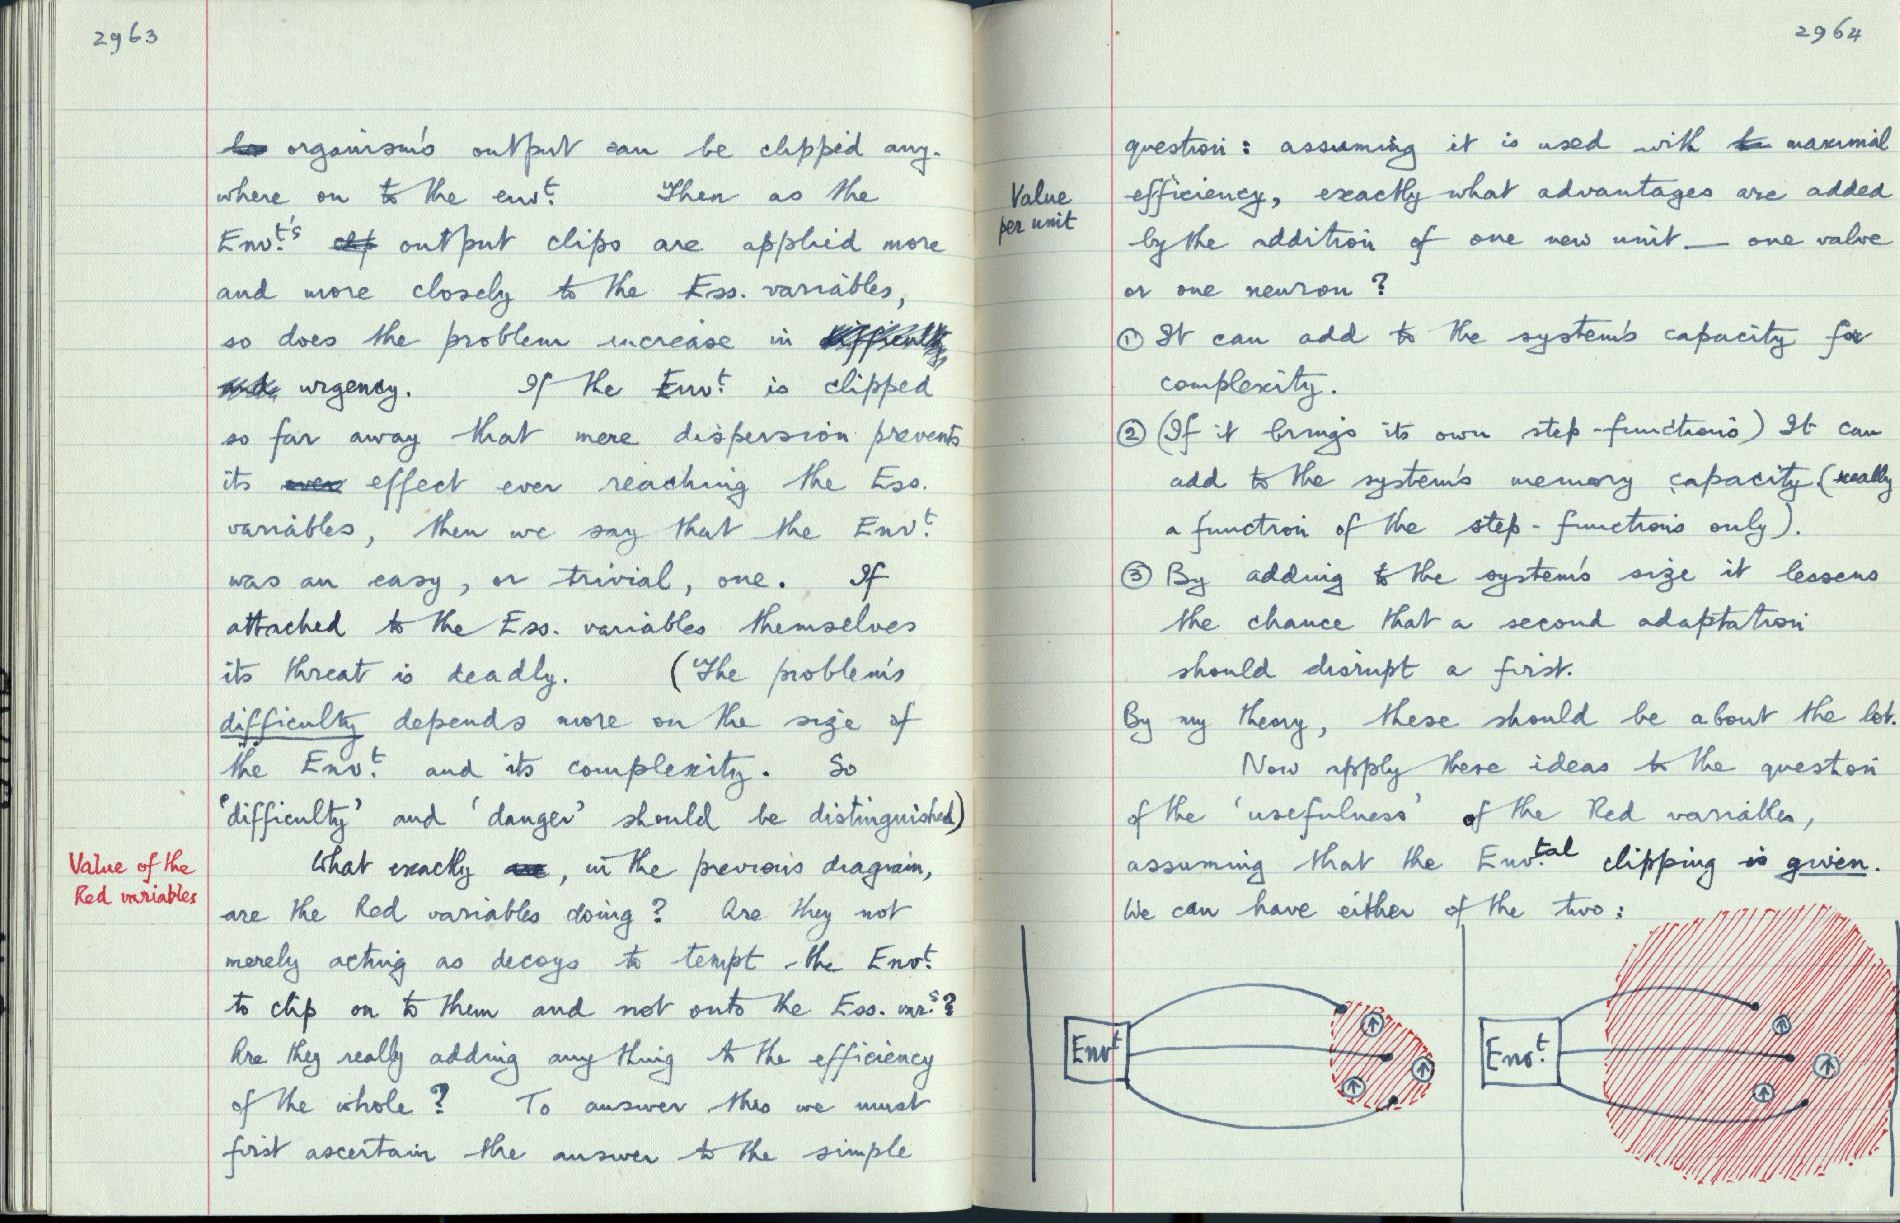 2963
organism's output can be clipped any-
where on to the env.t Then as the
Env.t's output clips are applied more
and more closely to the Ess. variables,
so does the problem increase in
urgency. If the Env.t is clipped
so far away that mere dispersion prevents
its effect ever reaching the Ess.
variables, then we say that the Env.t
was an easy, or trivial, one. If
attached to the Ess. variables themselves
its threat is deadly. (The problem's
difficulty depends more on the size of
the Env.t and its complexity. So
'difficulty' and 'danger' should be distinguished)
Value of the
Red variables
What exactly, in the previous diagram,
are the Red variables doing? Are they not
merely acting as decoys to tempt the Env.t
to clip on to them and not onto the Ess. var.s?
Are they really adding any thing to the efficiency
of the whole? To answer this we must
first ascertain the answer to the simple
2964
question: assuming it is used with maximal
Value
per unit
efficiency, exactly what advantages are added
by the addition of one new unit — one valve
or one neuron?
① It can add to the system's capacity for
complexity.
② (If it brings its own step-functions) It can
add to the system's memory capacity (really
a function of the step-functions only).
③ By adding to the system's size it lessens
the chance that a second adaptation
should disrupt a first.
By my theory, these should be about the lot.
Now apply these ideas to the question
of the 'usefulness' of the Red variables,
assuming that the Env.tal clipping is given.
We can have either of the two:
Env.t
Env.t